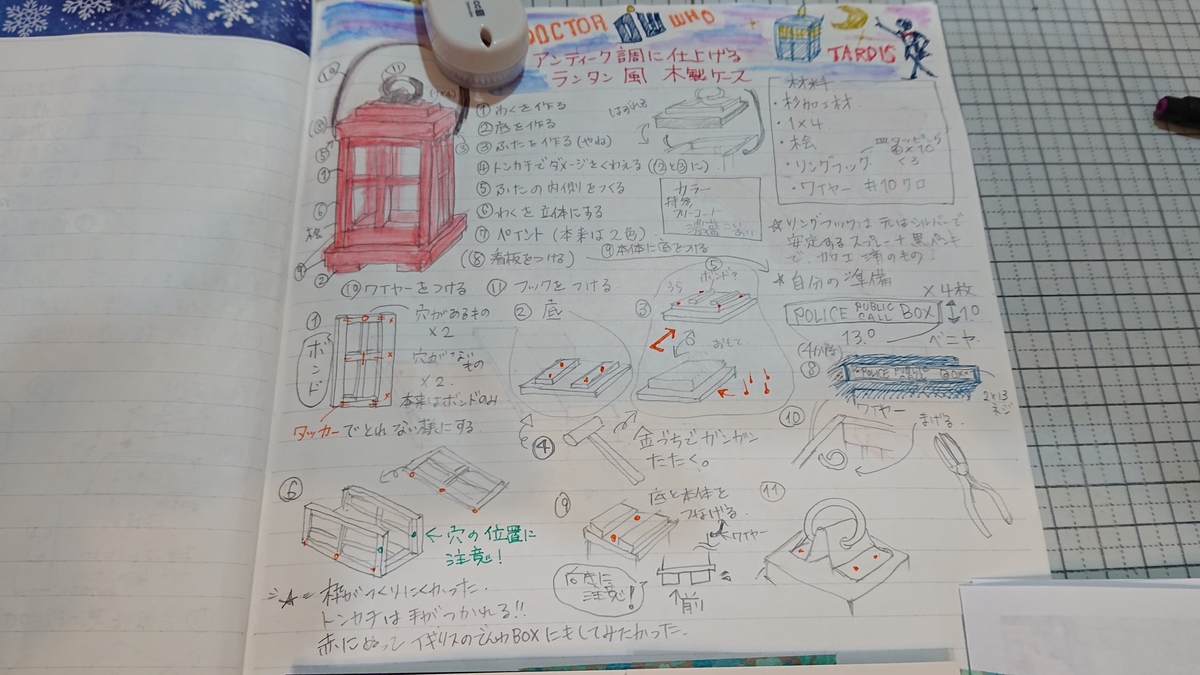 DOCTOR WHO
TARDIS
アンティーク調に仕上げる
ランタン風 木製ケース
① わくを作る
② 底を作る
③ ふたを作る(やね)
④ トンカチでダメージをくわえる (②と③に)
⑤ ふたの内側をつくる
⑥ わくを立体にする
⑦ ペイント (本来は2色)
⑧ 看板をつける
⑨ 本体に底をつける
⑩ ワイヤーをつける
⑪ フックをつける
はずれる
カラー
材料
・杉加工材
・1×4
・桧
・リングフック
・ワイヤー #10クロ
☆リングフックは元はシルバーで
安定するスプレー+黒ペンキ
で、加工済のもの!
☆自分の準備
×4枚
POLICE PUBLIC CALL BOX
13.0
ベニヤ
①
ボンド
穴があるもの
×2
穴がないもの
×2.
本来はボンドのみ
タッカーでとれない様にする
② 底
③
⑤
ボンド?
うら
おもて
④
金づちでガンガン
たたく。
⑧
POLICE PUBLIC CALL BOX
2×13
ネジ
⑩
ワイヤー
まげる
⑥
←穴の位置に
注意!
⑨
底と本体を
つなげる
←ワイヤー
向きに
注意!
↑前
⑪
枠がつくりにくかった.
トンカチは手がつかれる!!
赤にぬって イギリスのでんわBOXにもしてみたかった.